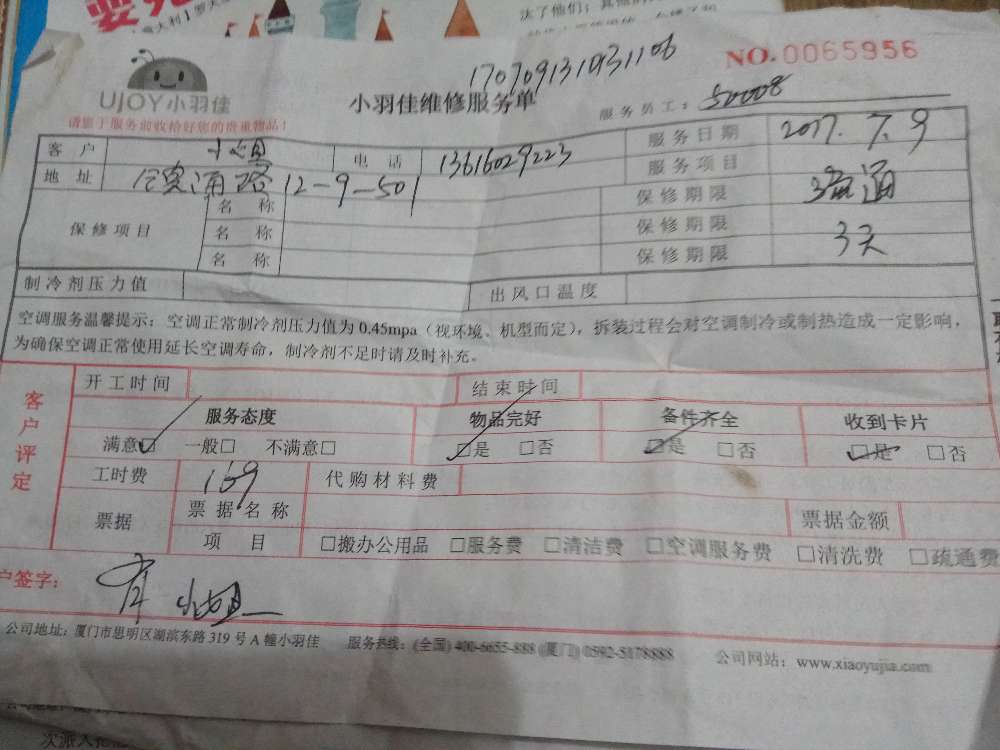 170709131931106
NO.0065956
UJOY小羽佳
小羽佳维修服务单
服务员工：50008
请您于服务前收拾好您的贵重物品！
客 户
电 话 13616029223
服务日期 2017.7.9
地 址 路12-9-501
服务项目
保修项目
名 称
保修期限
名 称
保修期限 3天
名 称
保修期限
制冷剂压力值
出风口温度
空调服务温馨提示：空调正常制冷剂压力值为0.45mpa（视环境、机型而定），拆装过程会对空调制冷或制热造成一定影响，
为确保空调正常使用延长空调寿命，制冷剂不足时请及时补充。
客户评定
开工时间
结束时间
服务态度
物品完好
备件齐全
收到卡片
满意□ 一般□ 不满意□
□是 □否
□是 □否
□是 □否
工时费 169
代购材料费
票据
票据名称
票据金额
项 目
□搬办公用品 □服务费 □清洁费 □空调服务费 □清洗费 □疏通费
户签字：
公司地址：厦门市思明区湖滨东路319号A幢小羽佳 服务热线：(全国) 400-6655-888 (厦门) 0592-5178888 公司网站：www.xiaoyujia.com